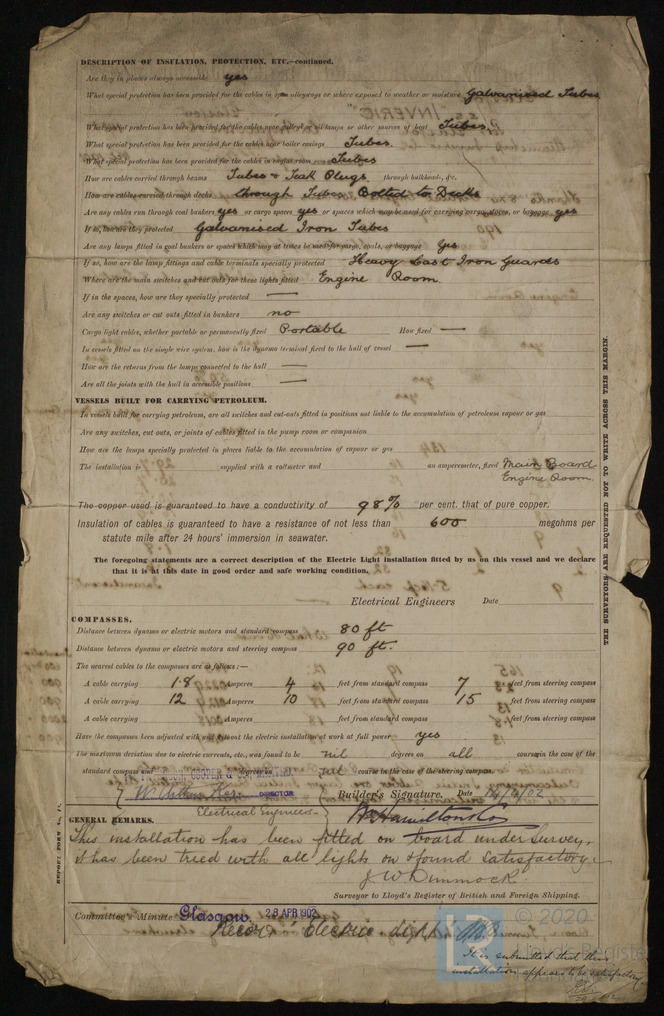 DESCRIPTION OF INSULATION, PROTECTION, ETC.—continued.
Are they in places always accessible yes
What special protection has been provided for the cables in open alleyways or where exposed to weather or moisture Galvanised Tubes
What special protection has been provided for the cables near galleys or oil lamps or other sources of heat Tubes
What special protection has been provided for the cables near boiler casings Tubes
What special protection has been provided for the cables in engine room Tubes
How are cables carried through beams Tubes & Teak Plugs through bulkheads, &c.
How are cables carried through decks through Tubes Bolted to Decks
Are any cables run through coal bunkers yes or cargo spaces yes or spaces which may be used for carrying cargo, stores, or baggage yes
If so, how are they protected Galvanised Iron Tubes
Are any lamps fitted in coal bunkers or spaces which may at times be used for cargo, coals, or baggage yes
If so, how are the lamp fittings and cable terminals specially protected Heavy Cast Iron Guards
Where are the main switches and cut outs for these lights fitted Engine Room
If in the spaces, how are they specially protected —
Are any switches or cut outs fitted in bunkers no
Cargo light cables, whether portable or permanently fixed Portable How fixed —
In vessels fitted on the single wire system, how is the dynamo terminal fixed to the hull of vessel —
How are the returns from the lamps connected to the hull —
Are all the joints with the hull in accessible positions —
VESSELS BUILT FOR CARRYING PETROLEUM.
In vessels built for carrying petroleum, are all switches and cut-outs fitted in positions not liable to the accumulation of petroleum vapour or gas
Are any switches, cut outs, or joints of cables fitted in the pump room or companion
How are the lamps specially protected in places liable to the accumulation of vapour or gas
The installation is supplied with a voltmeter and an amperemeter, fixed Main Board
Engine Room.
The copper used is guaranteed to have a conductivity of 98% per cent. that of pure copper.
Insulation of cables is guaranteed to have a resistance of not less than 600 megohms per
statute mile after 24 hours' immersion in seawater.
The foregoing statements are a correct description of the Electric Light installation fitted by us on this vessel and we declare
that it is at this date in good order and safe working condition.
Electrical Engineers Date
COMPASSES.
Distance between dynamo or electric motors and standard compass 80 ft
Distance between dynamo or electric motors and steering compass 90 ft.
The nearest cables to the compasses are as follows:—
A cable carrying 1.8 Amperes 4 feet from standard compass 7 feet from steering compass
A cable carrying 12 Amperes 10 feet from standard compass 15 feet from steering compass
A cable carrying Amperes feet from standard compass feet from steering compass
Have the compasses been adjusted with and without the electric installation at work at full power yes
The maximum deviation due to electric currents, etc., was found to be nil degrees on all course in the case of the
standard compass and degrees on course in the case of the steering compass.
DIRECTOR
Builder's Signature. Date
Electrical Engineers Wm Hamilton & Co
GENERAL REMARKS.
This installation has been fitted on board under Survey,
it has been tried with all lights on & found Satisfactory.
J W Dimmock
Surveyor to Lloyd's Register of British and Foreign Shipping.
Committee's Minute Glasgow 28 APR 1902
Record Electric Light
It is submitted that this
installation appears to be satisfactory
THE SURVEYORS ARE REQUESTED NOT TO WRITE ACROSS THIS MARGIN.
© 2020
Lloyd's Register